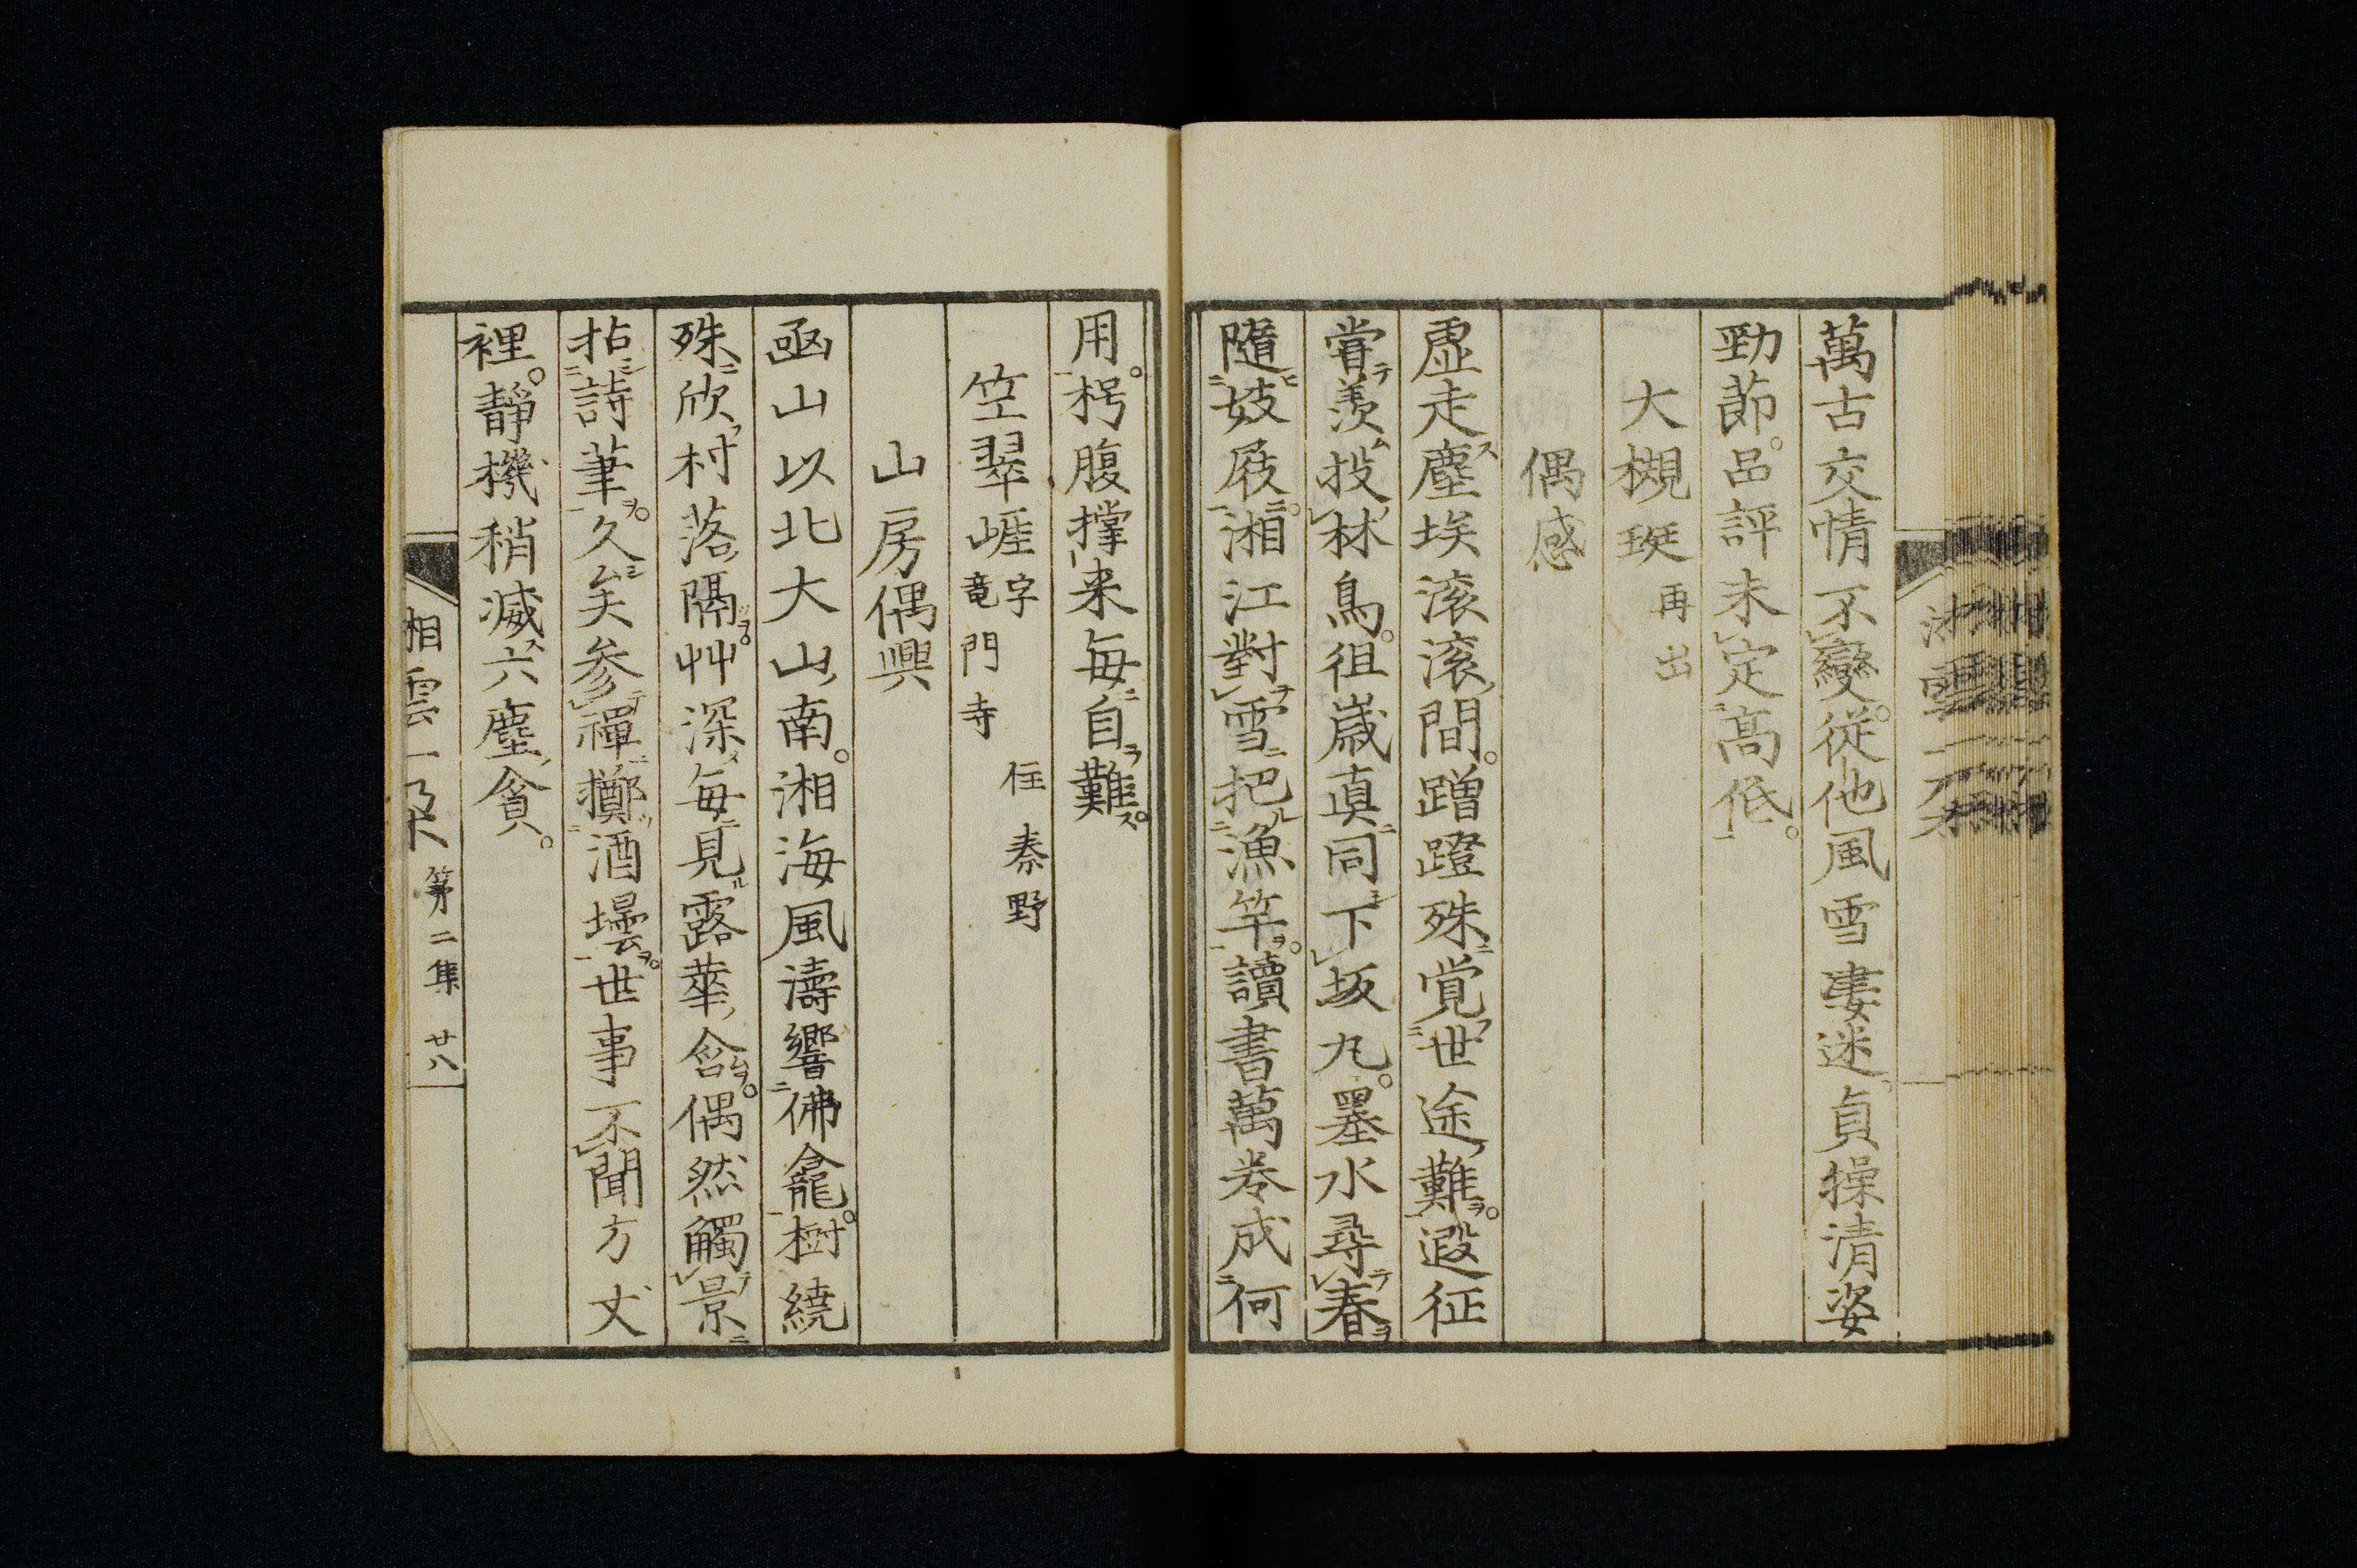 萬古交情不變。從他風雪凄迷。貞操清姿
勁莭。品評未定高低。
大槻珽 再出
偶感
虛走塵埃滚滚間。蹭蹬殊覚世途難。遐征
嘗羨投林鳥。徂歳真同下坂丸。墨水尋春
隨妓屐。湘江對雪把漁竿。讀書萬卷成何
用。枵腹撑来毎自難。
笠翠崕 字竜門寺 住秦野
山房偶興
凾山以北大山南。湘海風濤響佛龕。樹繞
殊欣村落隔。艸深毎見露華含。偶然觸景
拈詩筆。久矣参禪擲酒壜。世事不聞方丈
裡。靜機稍滅六塵貪。
湘雲一朶 第二集 廿八